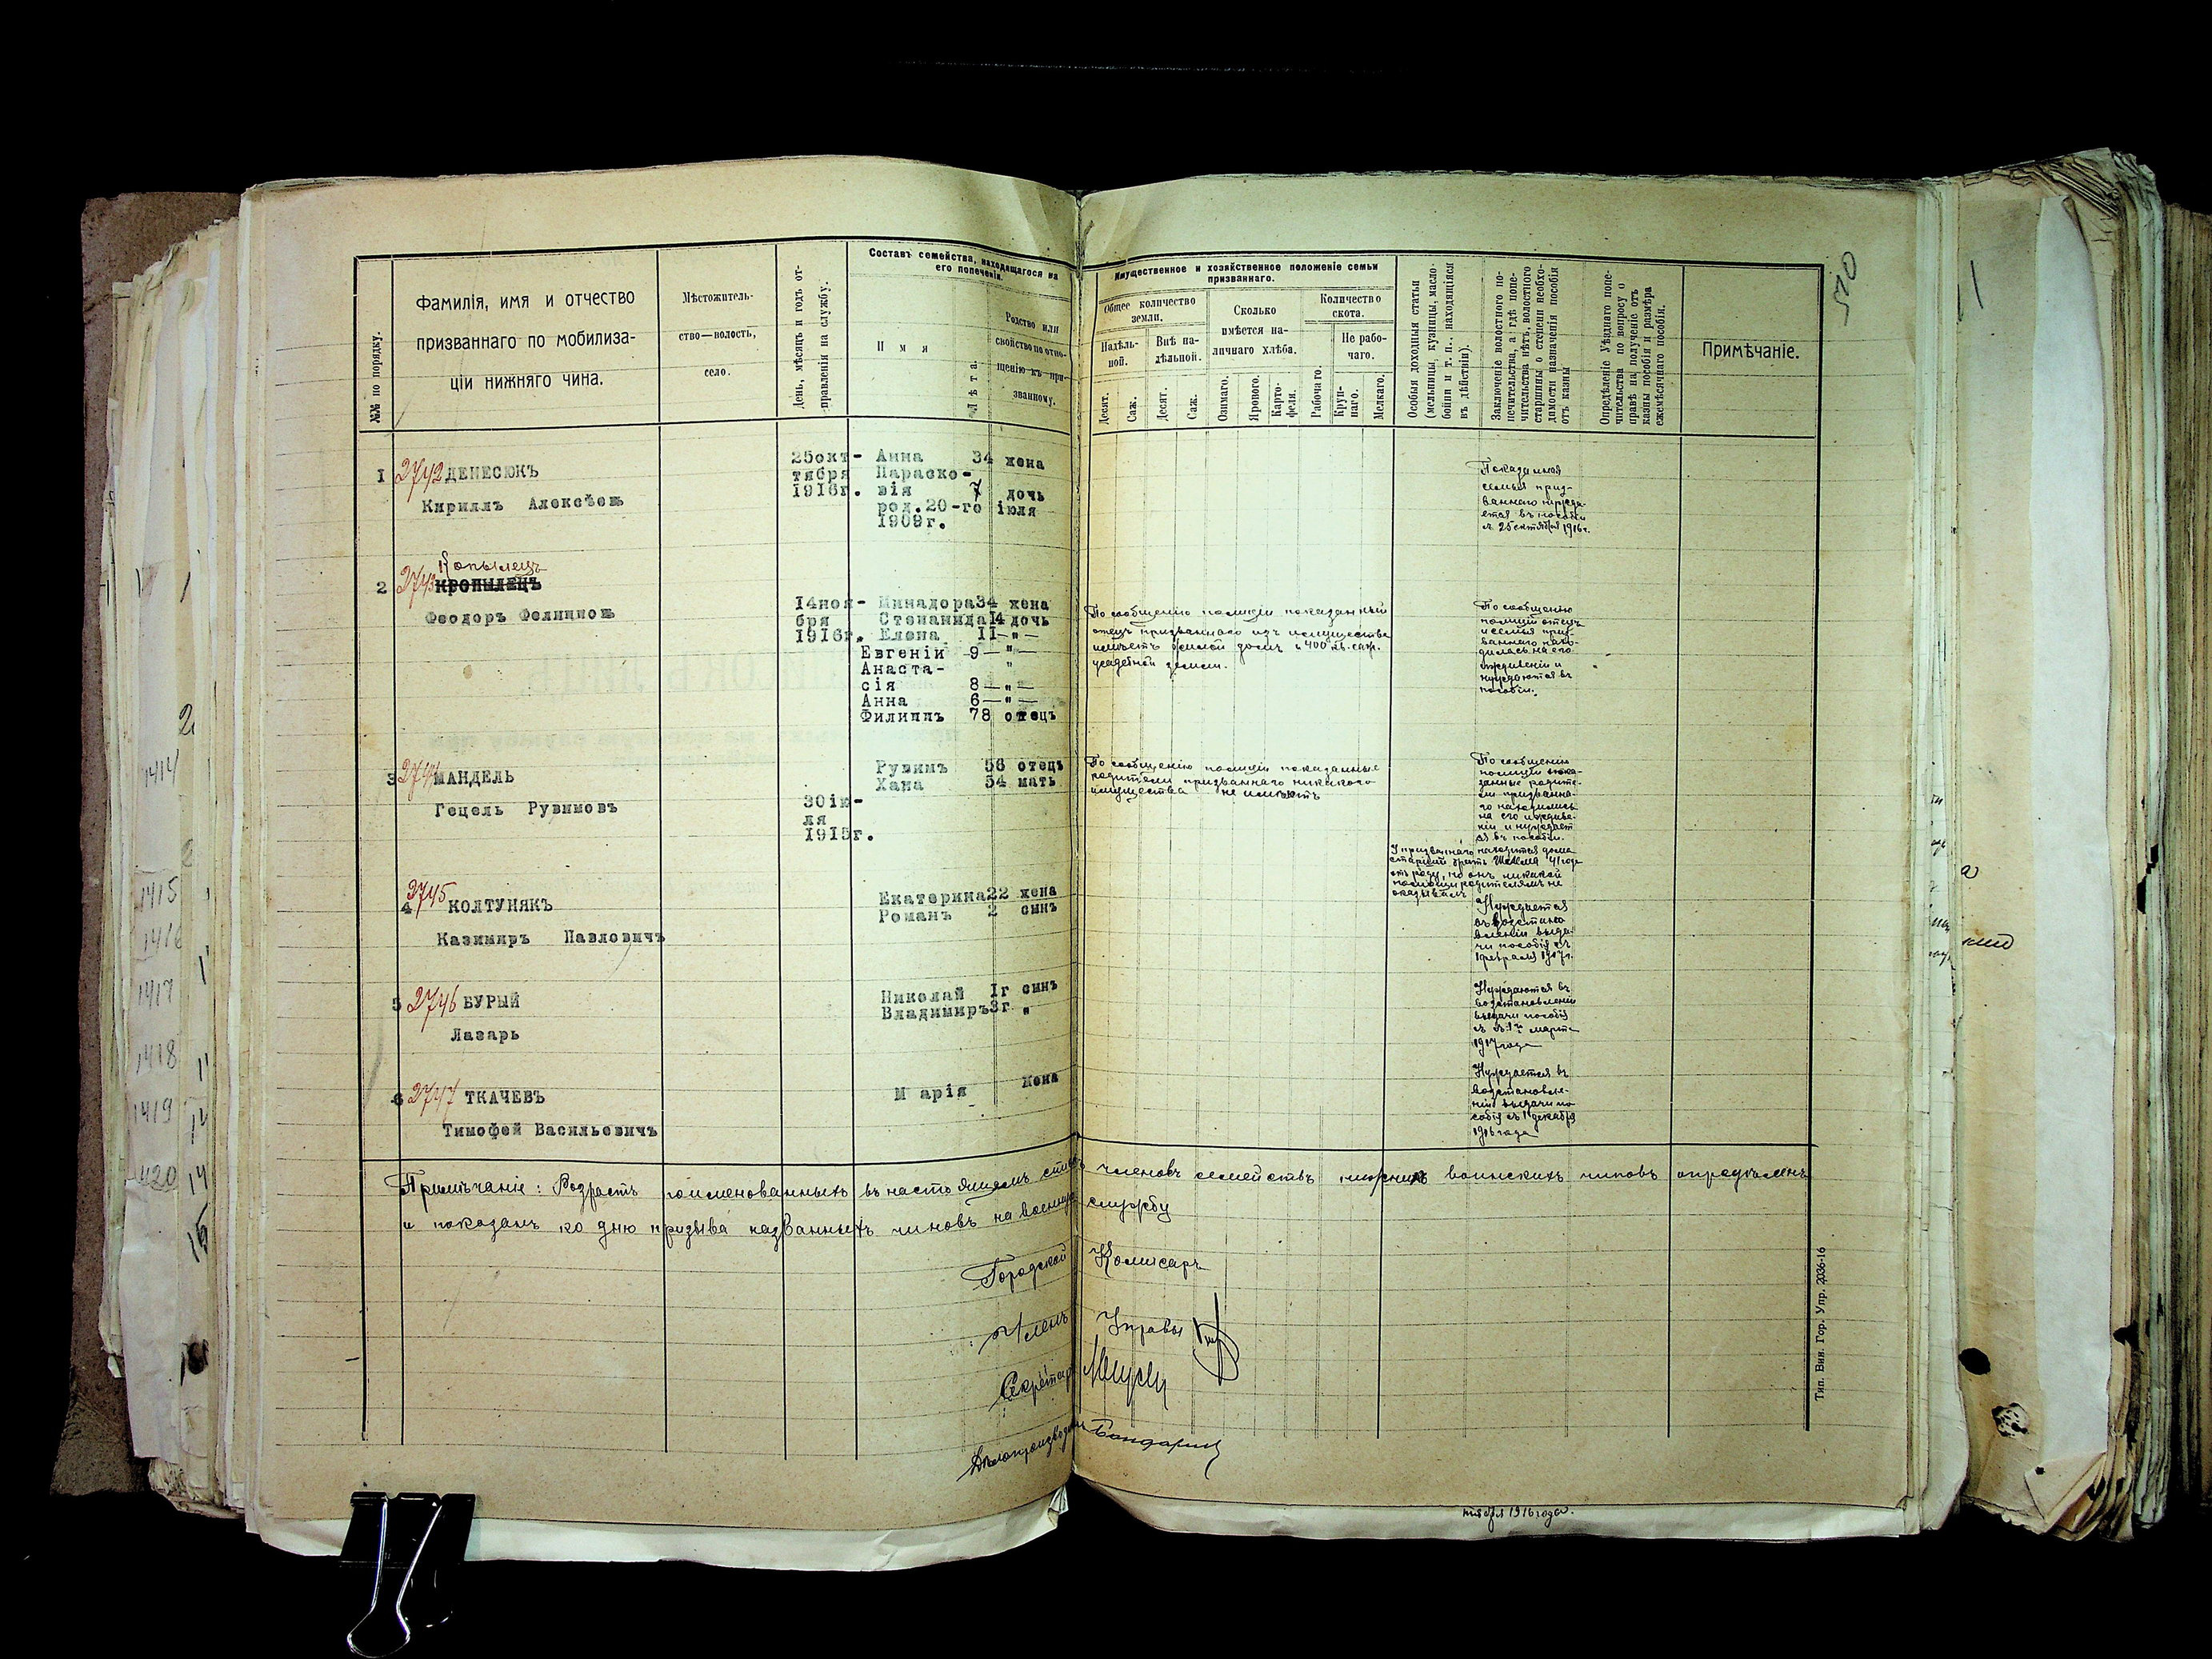 570
Фамилія, имя и отчество
призваннаго по мобилиза-
ціи нижняго чина.
№№ по порядку.
Мѣстожитель-
ство—волость,
село.
День, мѣсяцъ и годъ от-
правленія на службу.
Составъ семейства, находящагося на
его попеченіи.
Имя
Лѣта.
Родство или
свойство по отно-
шенію къ при-
званному.
Имущественное и хозяйственное положеніе семьи
призваннаго.
Общее количество
земли.
Надѣль-
ной.
Внѣ на-
дѣльной.
Десят.
Саж.
Десят.
Саж.
Сколько
имѣется на-
личнаго хлѣба.
Озимаго.
Ярового.
Карто-
феля.
Количество
скота.
Рабочаго.
Не рабо-
чаго.
Круп-
наго.
Мелкаго.
Особыя доходныя статьи
(мельницы, кузницы, масло-
бойни и т. п., находящіяся
въ дѣйствіи).
Заключеніе волостного по-
печительства, а гдѣ попе-
чительства нѣтъ, волостного
старшины о степени необхо-
димости назначенія пособія
отъ казны
Опредѣленіе Уѣзднаго попе-
чительства по вопросу о
правѣ на полученіе отъ
казны пособія и размѣра
ежемѣсячнаго пособія.
Примѣчаніе.
1 2742 ДЕНЕСЮКЪ
Кириллъ Алексѣевъ
25окт-
тября
1916г.
Анна 34 жена
Параско-
вія 7 дочь
род.20-го іюля
1909г.
Показанная
семья приз-
ваннаго нужда-
ется въ пособіи
съ 25 октября 1916г.
Копылецъ
2 2743 КРОПЫЛЕЦЪ
Феодоръ Филиппов
14ноя-
бря
1916г.
Минадора 34 жена
Степанида 14 дочь
Елена 11 — " —
Евгеніи 9 — " —
Анаста- "
сія 8 — " —
Анна 6 — " —
Филиппъ 78 отецъ
По сообщенію полиціи показанный
отецъ призваннаго изъ имущества
имѣетъ жилой домъ и 400 кв. саж.
усадебной земли.
По сообщенію
полиціи отецъ
и семья приз-
ваннаго нахо-
дилась на его
иждивеніи и
нуждаются въ
пособіи.
3 2744 МАНДЕЛЬ
Гецель Рувимовъ
30 ію-
ля
1915г.
Рувимъ 56 отецъ
Хана 54 мать
По сообщенію полиціи показанные
родители призваннаго никакого
имущества не имѣютъ
По сообщенію
полиціи пока-
занные родите-
ли призванна-
го находились
на его иждиве-
ніи и нуждают
ся въ пособіи.
У призваннаго находится дома
старшій братъ 41 годъ
отъ роду, но онъ никакой
помощи родителямъ не
оказываетъ
4 2745 КОЛТУНЯКЪ
Казимиръ Павловичъ
Екатерина 22 жена
Романъ 2 сынъ
Нуждается
въ возстано
вленіи выда-
чи пособія съ
1 февраля 1917г.
5 2746 БУРЫЙ
Лазарь
Николай 1г сынъ
Владимиръ 3г "
Нуждаются въ
возстановленіи
выдачи пособія
съ 1го марта
1917 года
6 2747 ТКАЧЕВЪ
Тимофей Васильевичъ
Марія жена
Нуждается въ
возстановле-
ніи выдачи по
собія съ 1 декабря
1916 года
Примѣчаніе: Возрастъ поименованныхъ въ настоящемъ спискѣ членовъ семействъ нижнихъ воинскихъ чиновъ опредѣленъ
и показанъ ко дню призыва названныхъ чиновъ на военную службу
Городской Комисаръ
Членъ Управы
Секретарь
Дѣлопроизводитель
Тип. Вин. Гор. Упр. 2036-16
1916 года.
1414
1415
1416
1417
1418
1419
1420